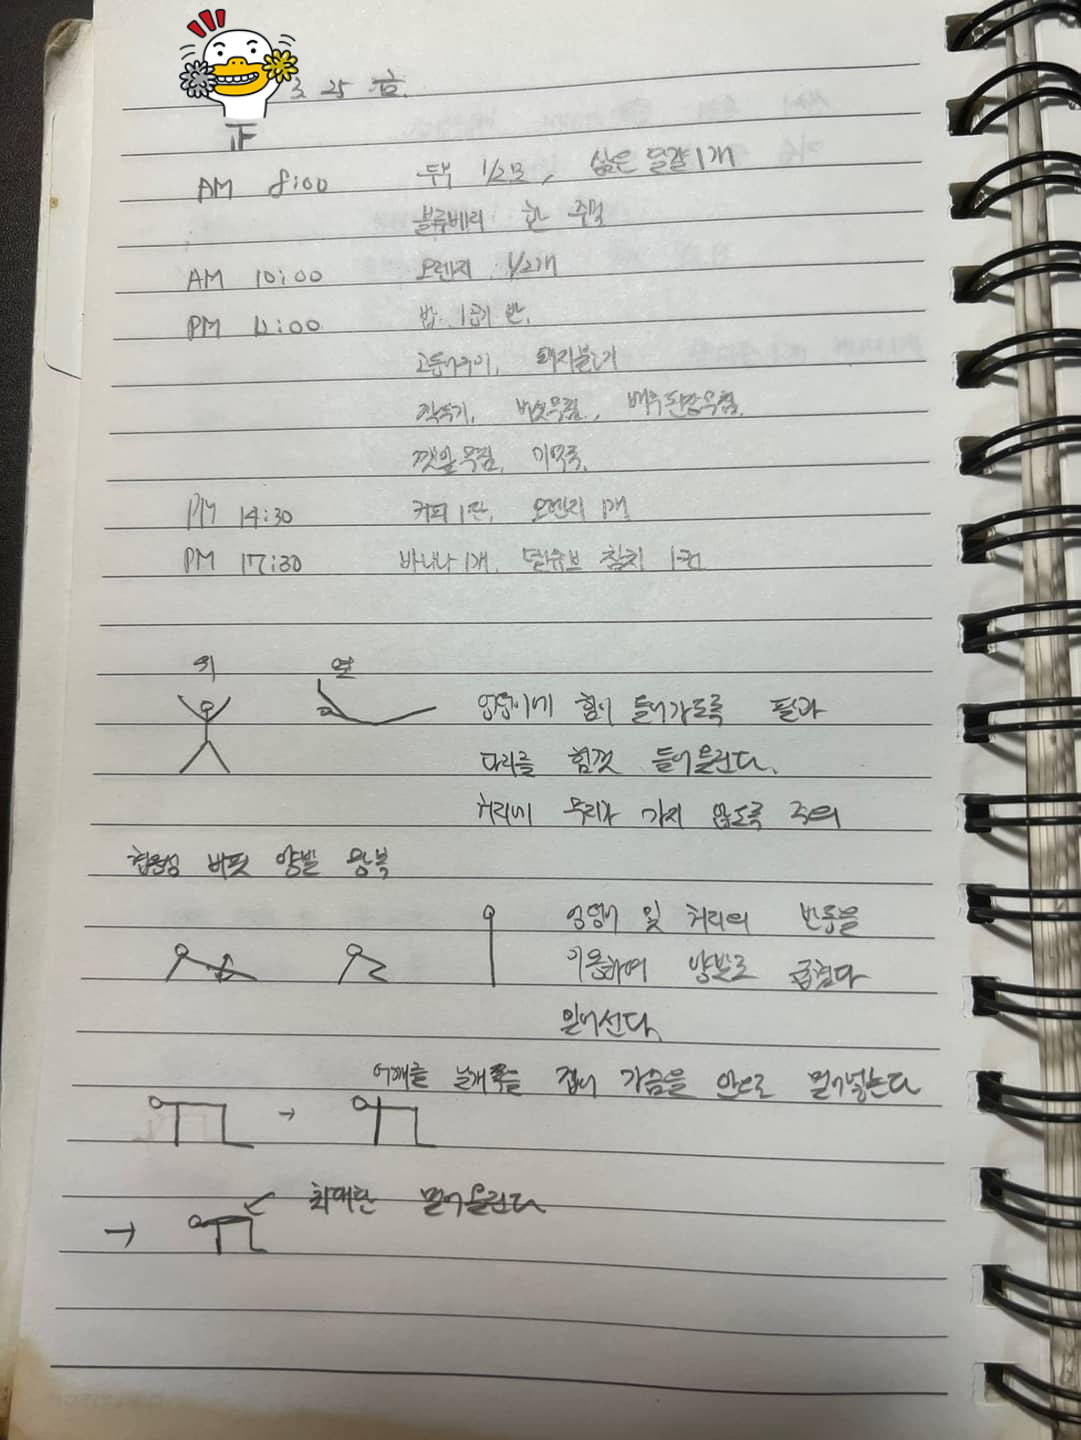 3. 25 금.
正
AM 8:00 두부 1/2모, 삶은 달걀 1개
블루베리 한 주먹
AM 10:00 오렌지 1/2개
PM 12:00 밥 1공기 반.
고등어구이, 돼지불고기
깍두기, 버섯무침, 배추된장무침,
깻잎무침, 미역국.
PM 14:30 커피 1잔, 오렌지 1개
PM 17:30 바나나 1개, 참치 1캔
위 옆
엉덩이에 힘이 들어가도록 팔과
다리를 힘껏 들어올린다.
허리에 무리가 가지 않도록 주의
버핏 양발 왕복
엉덩이 및 허리의 반동을
이용하여 양발로
일어선다.
어깨를 날개쭉을 접어 가슴을 안으로 밀어넣는다
→
→ 최대한 밀어올린다